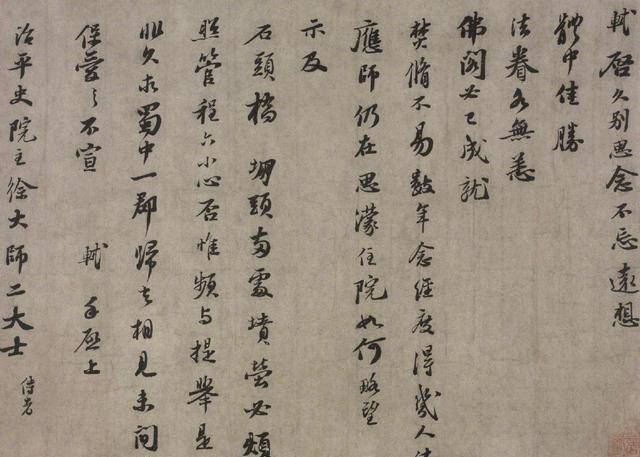 軾啓久別思念不忘遠想
體中佳勝
法眷各無恙
佛閣必已成就
焚脩不易數年念經度得幾人
應師仍在思濛住院如何略望
示及
石頭橋堋頭兩處墳塋必煩
照管程六小心否惟頻与提舉是
非久求蜀中一郡歸去相見未間
保愛之不宣 軾 手啓上
治平史院主徐大師二大士 侍者